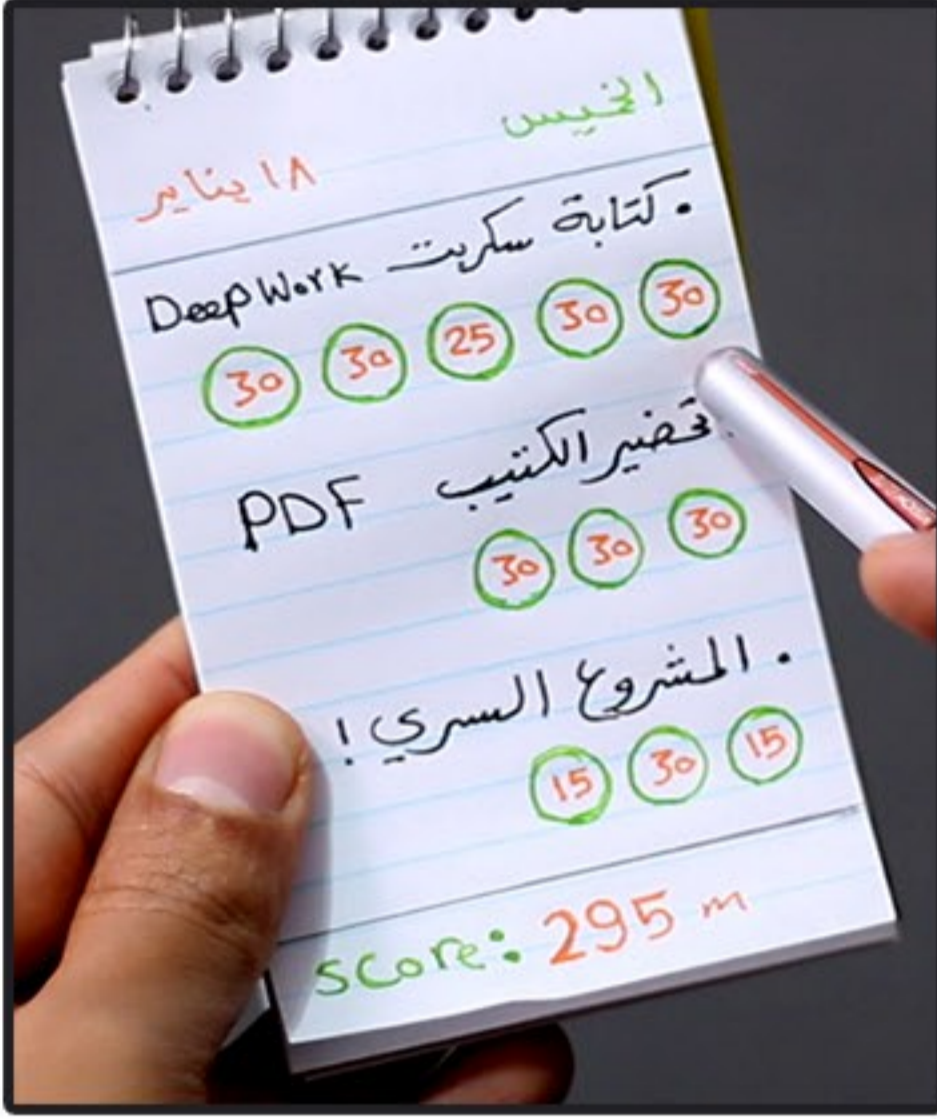 الخميس
١٨ يناير
• كتابة سكربت DeepWork
30 30 25 30 30
• تحضير الكتيب PDF
30 30 30
• المشروع السري !
15 30 15
score: 295 m